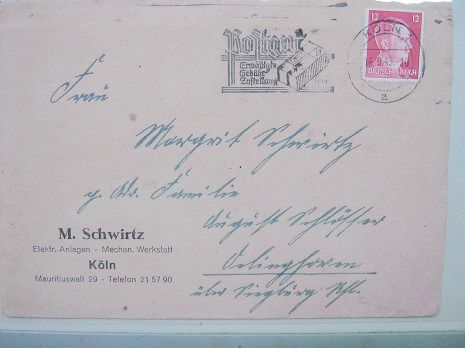 Postgut
Ermäßigte
Gebühr
Zustellung
KÖLN
a
12 12
DEUTSCHES REICH
Frau
Margrit Schwirtz
p. Adr. Familie
August Schlösser
Oelinghoven
über Siegburg
M. Schwirtz
Elektr. Anlagen - Mechan. Werkstatt
Köln
Mauritiuswall 29 - Telefon 21 57 90